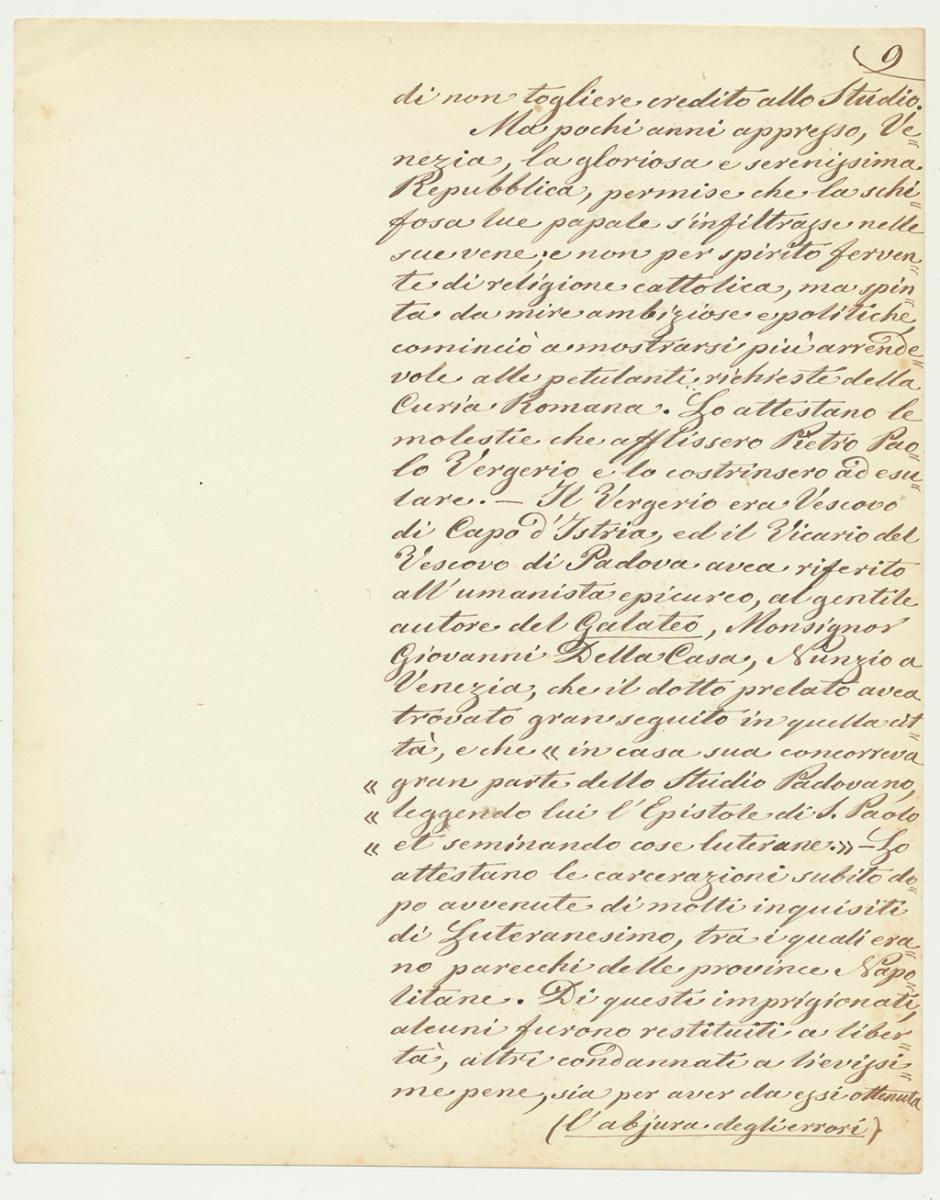 9
di non togliere credito allo Studio.
Ma pochi anni appresso, Ve=
nezia, la gloriosa e serenissima
Repubblica, permise che la schi=
fosa lue papale s'infiltrasse nelle
sue vene; e non per spirito ferven=
te di religione cattolica, ma spin=
ta da mire ambiziose e politiche,
cominciò a mostrarsi più arrende=
vole alle petulanti richieste della
Curia Romana. Lo attestano le
molestie che afflissero Pietro Pao=
lo Vergerio e lo costrinsero ad esu=
lare. — Il Vergerio era Vescovo
di Capo d'Istria, ed il Vicario del
Vescovo di Padova avea riferito
all'umanista epicureo, al gentile
autore del Galateo, Monsignor
Giovanni Della Casa, Nunzio a
Venezia, che il dotto prelato avea
trovato gran seguito in quella cit=
tà, e che « in casa sua concorreva
« gran parte dello Studio Padovano,
« leggendo lui l'Epistole di S. Paolo
« et seminando cose luterane.» — Lo
attestano le carcerazioni subito do=
po avvenute di molti inquisiti
di Luteranesimo, tra i quali era=
no parecchi delle province Napo=
litane. Di questi imprigionati,
alcuni furono restituiti a liber=
tà, altri condannati a lievissi=
me pene, sia per aver da essi ottenuta
(l'abjura degli errori)